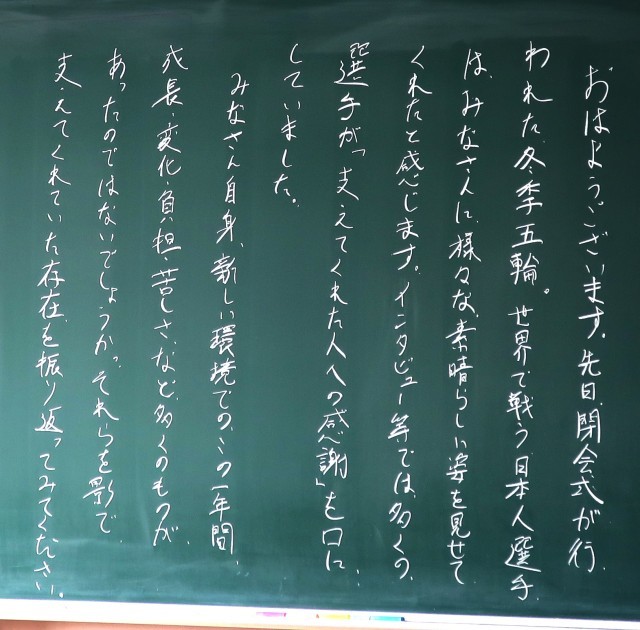 おはようございます。先日、閉会式が行
われた、冬季五輪。世界で戦う日本人選手
は、みなさんに、様々な、素晴らしい姿を見せて
くれたと感じます。インタビュー等では、多くの
選手が「支えてくれた人への感謝」を口に
していました。
みなさん自身、新しい環境での、この一年間
成長・変化・負担・苦しさ、など、多くのものが、
あったのではないでしょうか。それらを影で
支えてくれていた存在を振り返ってみてください。